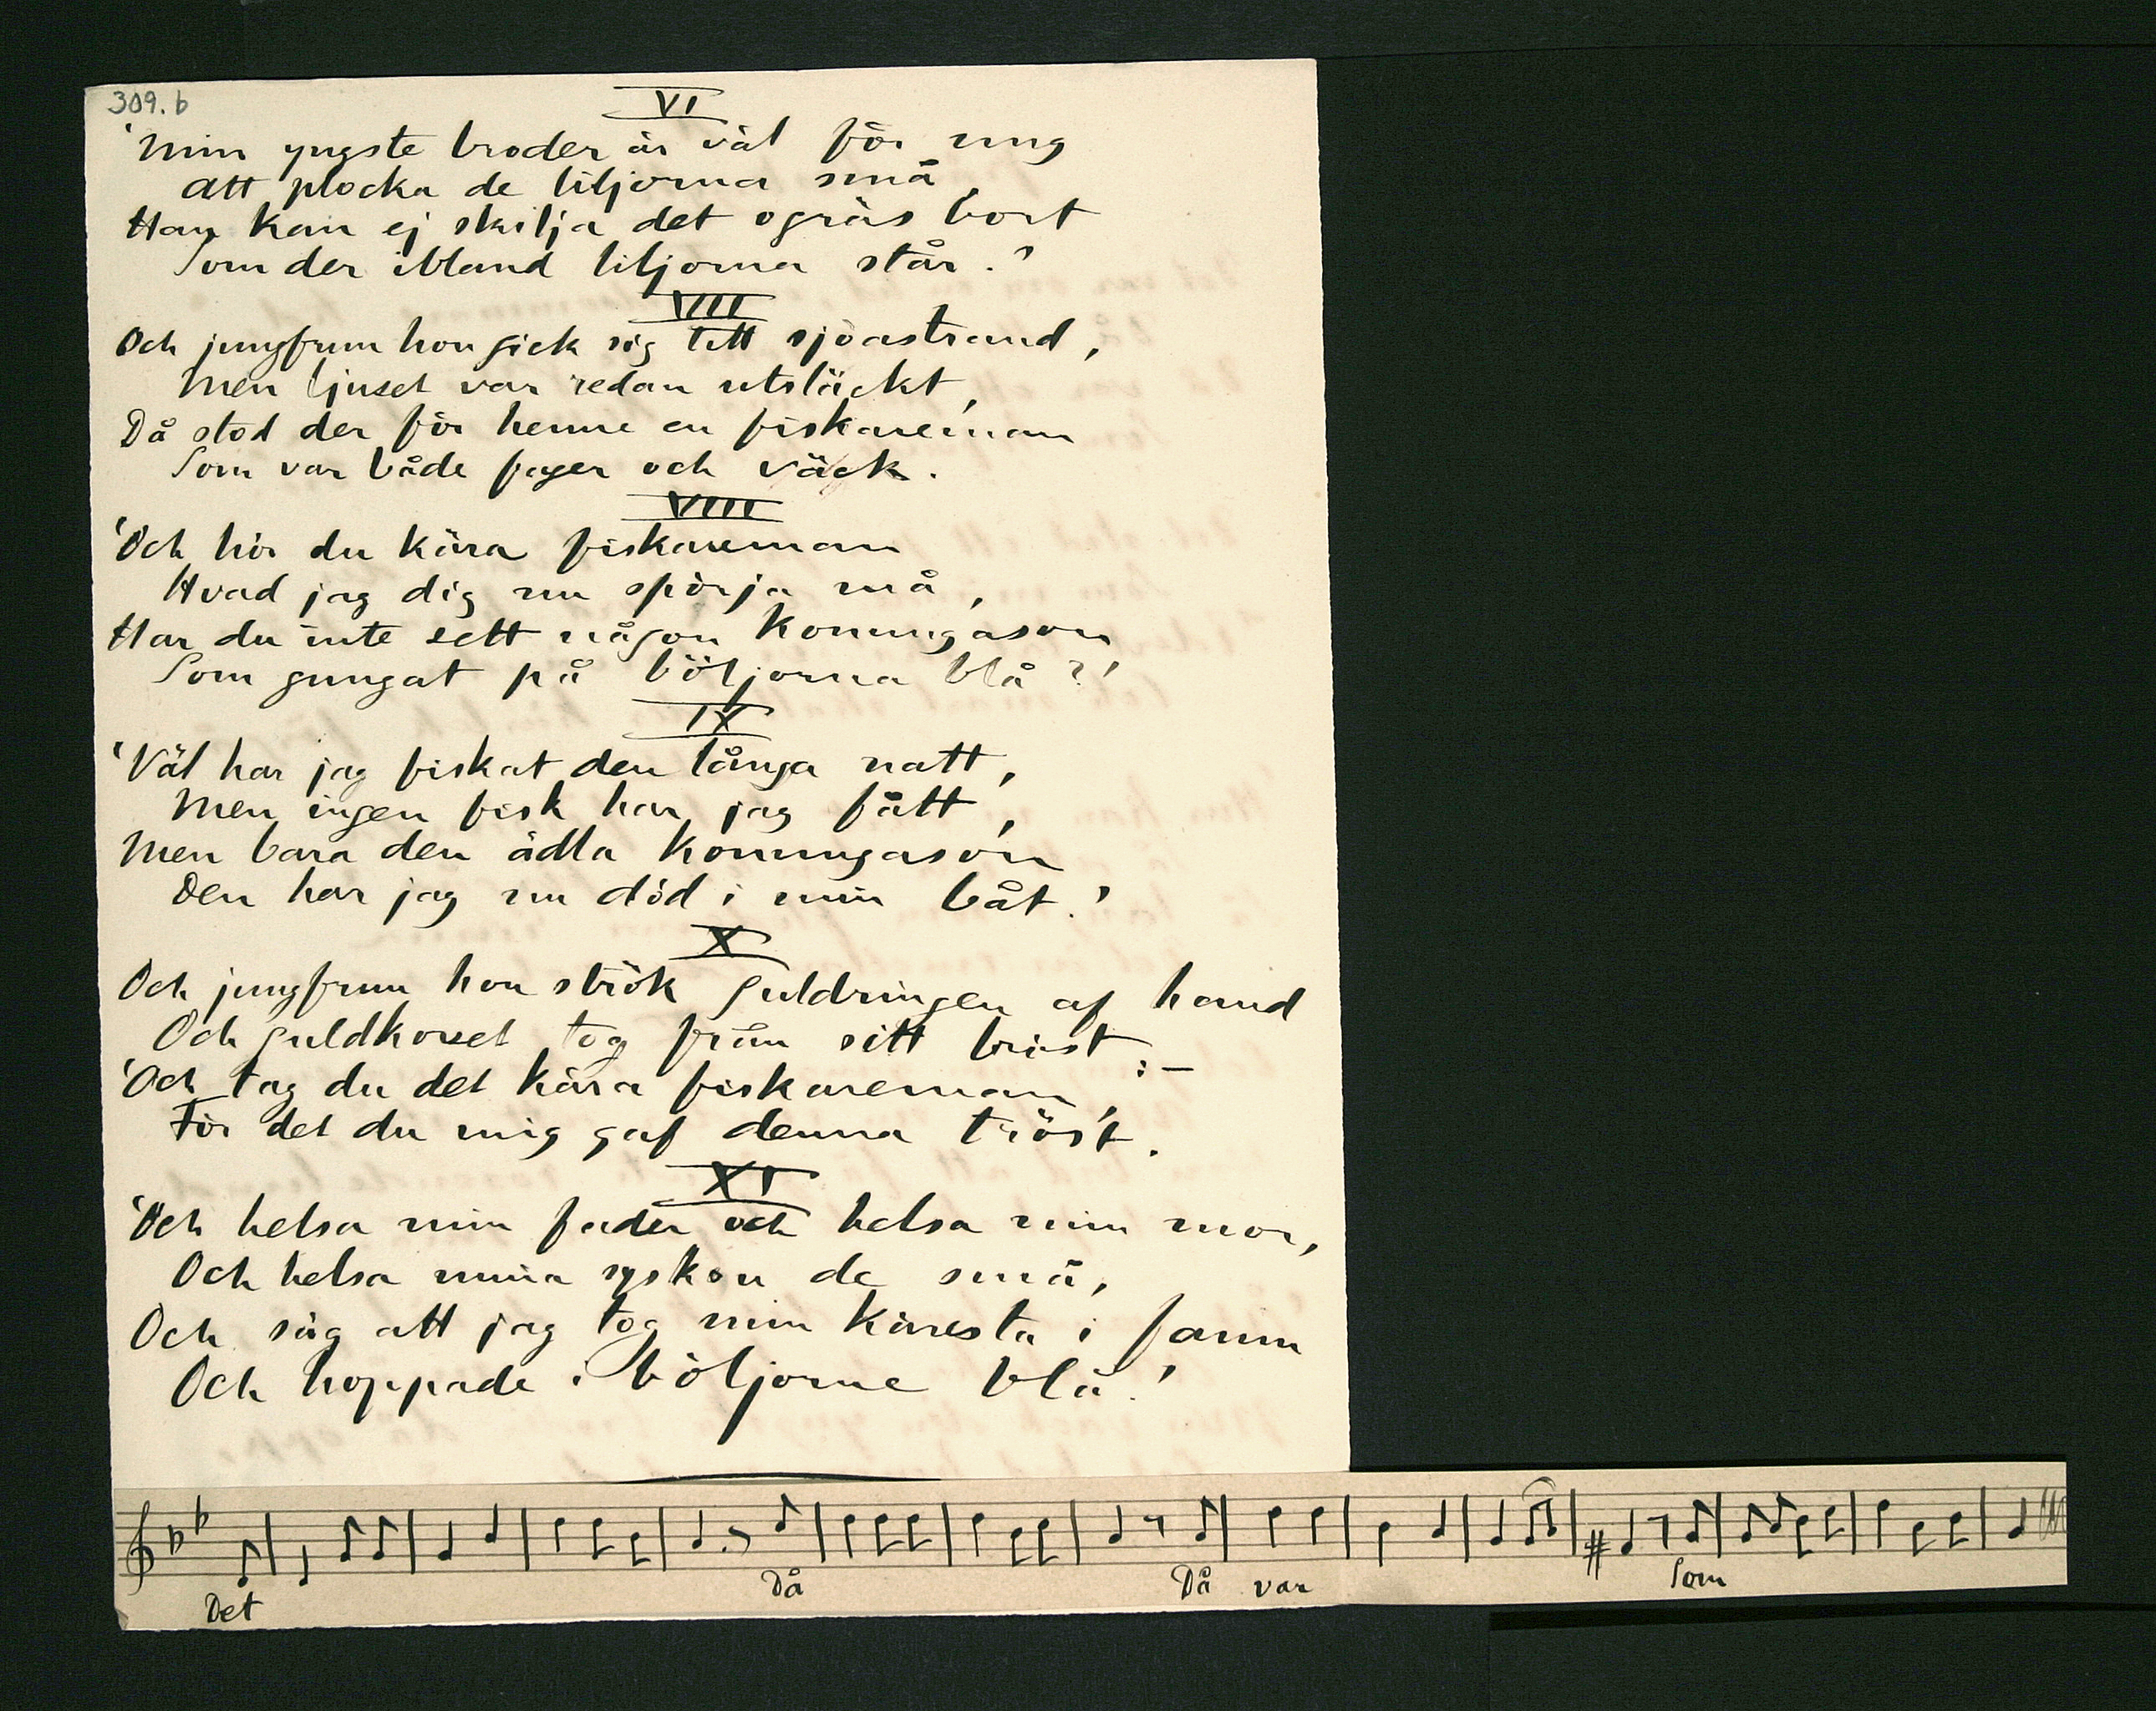 309.b
VI
'Min yngste broder är väl för ung
Att plocka de liljorna små,
Han kan ej skilja det ogräs bort
Som der ibland liljorna står.'
VIII
Och jungfrun hon gick sig till sjöastrand,
Men ljuset var redan utsläckt,
Då stod der för henne en fiskareman
Som var både fager och väck.
VIIII
'Och hör du kära fiskareman
Hvad jag dig nu spörja må,
Har du inte sett någon konungason
Som gungat på böljorna blå?'
IX
'Väl har jag fiskat den långa natt,
Men ingen fisk har jag fått,
Men bara den ädla konungason
Den har jag nu död i min båt.'
X
Och jungfrun hon strök guldringen af hand
Och guldkorset tog från sitt bröst:—
'Och tag du det kära fiskareman,
För det du mig gaf denna tröst.'
XI
'Och helsa min fader och helsa min mor,
Och helsa mina syskon de små,
Och säg att jag tog min käresta i famn
Och hoppade i böljorne blå.'
Det Då Då var Som